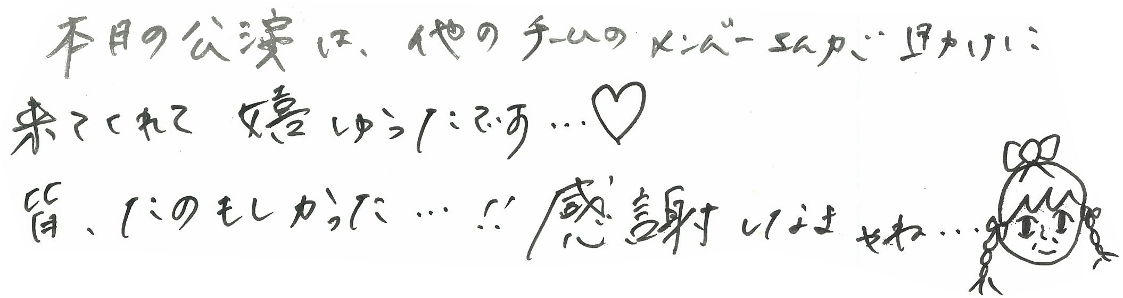 本日の公演は、他のチームのメンバーさんが助けに
来てくれて 嬉しかったです…♡
皆、たのもしかった…!! 感謝しなきゃね…